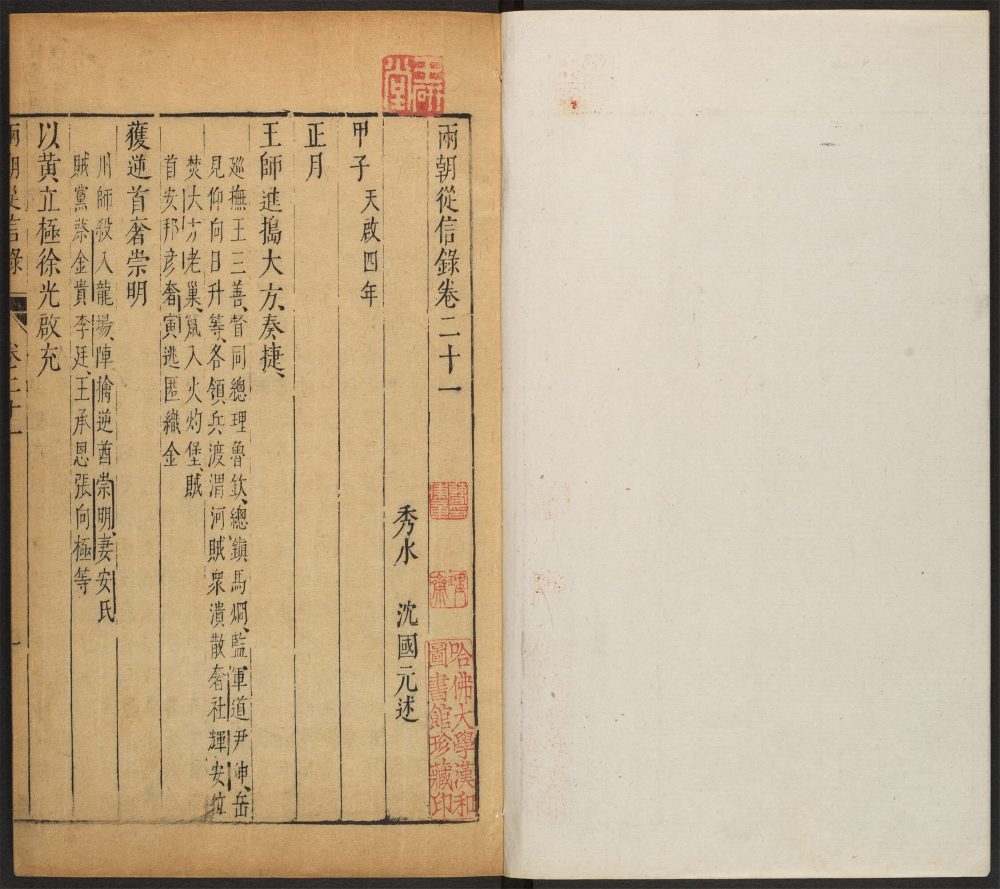 兩朝從信錄卷二十一
秀水 沈國元述
甲子 天啟四年
正月
王師進搗大方、奏捷、
廵撫王三善、督同總理魯欽、總鎮馬烱、監軍道尹伸、岳
見仰向日升等、各領兵渡渭河賊衆潰散奢社輝安位
焚大方老巢、竄入火灼堡、賊
首安邦彥奢寅逃匿織金
獲逆首奢崇明
川師殺入龍塲、陣擒逆酋崇明、妻安氏
賊黨蔡金貴李廷、王承恩張向極等
以黃立極徐光啟充
兩朝從信錄 卷二十一 一
哈佛大學漢和
圖書館珍藏印